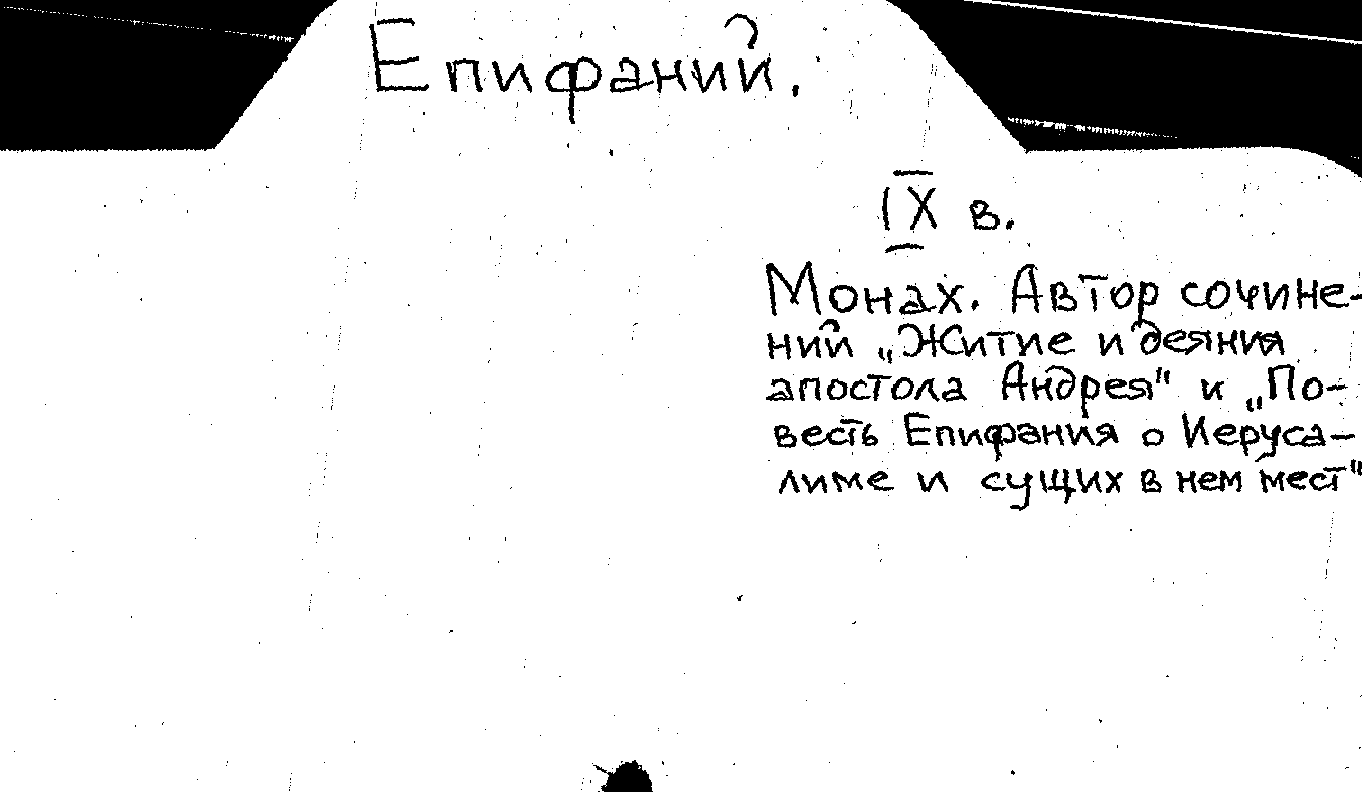 Епифаний.
IX в.
Монах. Автор сочине-
ний „Житие и деяния
апостола Андрея" и „По-
весть Епифания о Иеруса-
лиме и сущих в нем мест"